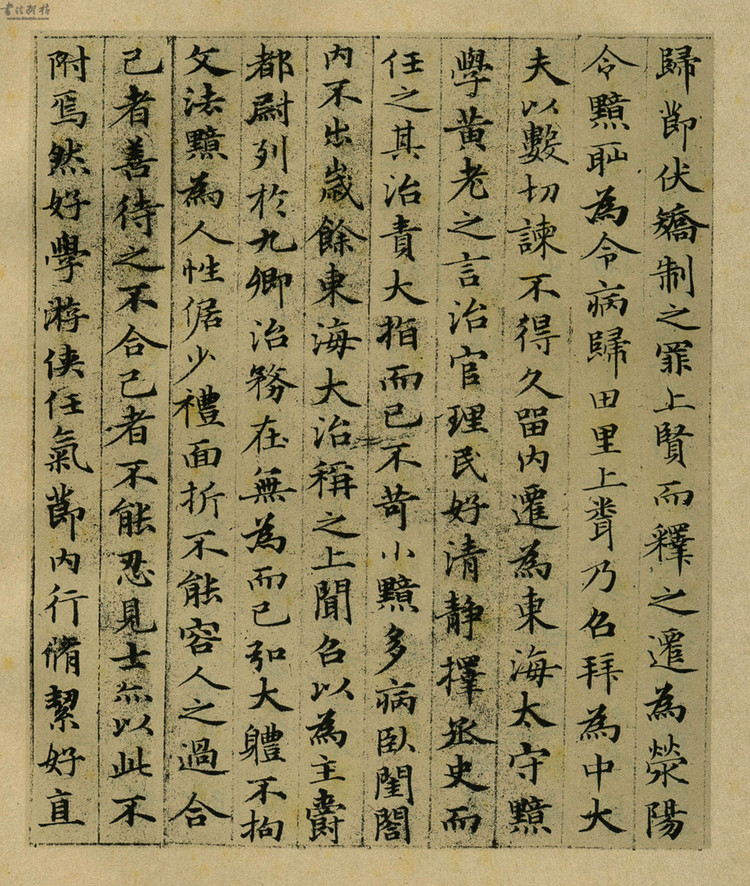 歸節伏矯制之罪上賢而釋之遷為滎陽
令黯恥為令病歸田里上聞乃召拜為中大
夫以數切諫不得久留內遷為東海太守黯
學黃老之言治官理民好清靜擇丞史而
任之其治責大指而已不苛小黯多病臥閨閤
內不出歲餘東海大治稱之上聞召以為主爵
都尉列於九卿治務在無為而已弘大體不拘
文法黯為人性倨少禮面折不能容人之過合
己者善待之不合己者不能忍見士亦以此不
附焉然好學游俠任氣節內行脩絜好直